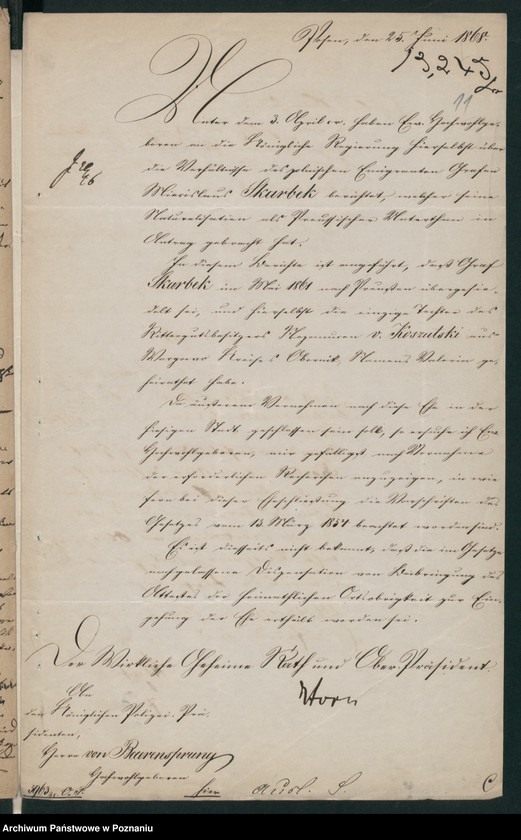 Posen, den 25. Juni 1868.
13,245
11
Unter dem 3. April cr. haben Ew. Hochwohlge-
boren an die Königliche Regierung hierselbst über
die Verhältnisse des polnischen Emigranten Grafen
Miecislaus Skarbek berichtet, welcher seine
Naturalisation als Preussischer Unterthan in
Antrag gebracht hat.
In diesem Berichte ist angeführt, daß Graf
Skarbek im Mai 1861 nach Preußen übergesie-
delt sei, und hierselbst die einzige Tochter des
Rittergutsbesitzers v. Koszutski aus
Wargowo Kreises Obornik, Namens Valeria ge-
heirathet habe.
Da äußerem Vernehmen nach diese Ehe in der
hiesigen Stadt geschlossen sein soll, so ersuche ich Ew.
Hochwohlgeboren, mir gefälligst nach Vornahme
der erforderlichen Recherchen anzuzeigen, in wie
fern bei dieser Eheschließung die Vorschriften des
Gesetzes vom 13. März 1854 beachtet worden sind.
Es ist diesseits nicht bekannt, daß die im Gesetze
nachgelassene Dispensation von Beibringung des
Attestes der heimathlichen Ortsobrigkeit zur Ein-
gehung der Ehe ertheilt worden sei.
Der Wirkliche Geheime Rath und Ober Präsident.
Horn
An
den Königlichen Polizei-Prä-
sidenten,
Herrn von Baerensprung
Hochwohlgeboren
hier
Archiwum Państwowe w Poznaniu